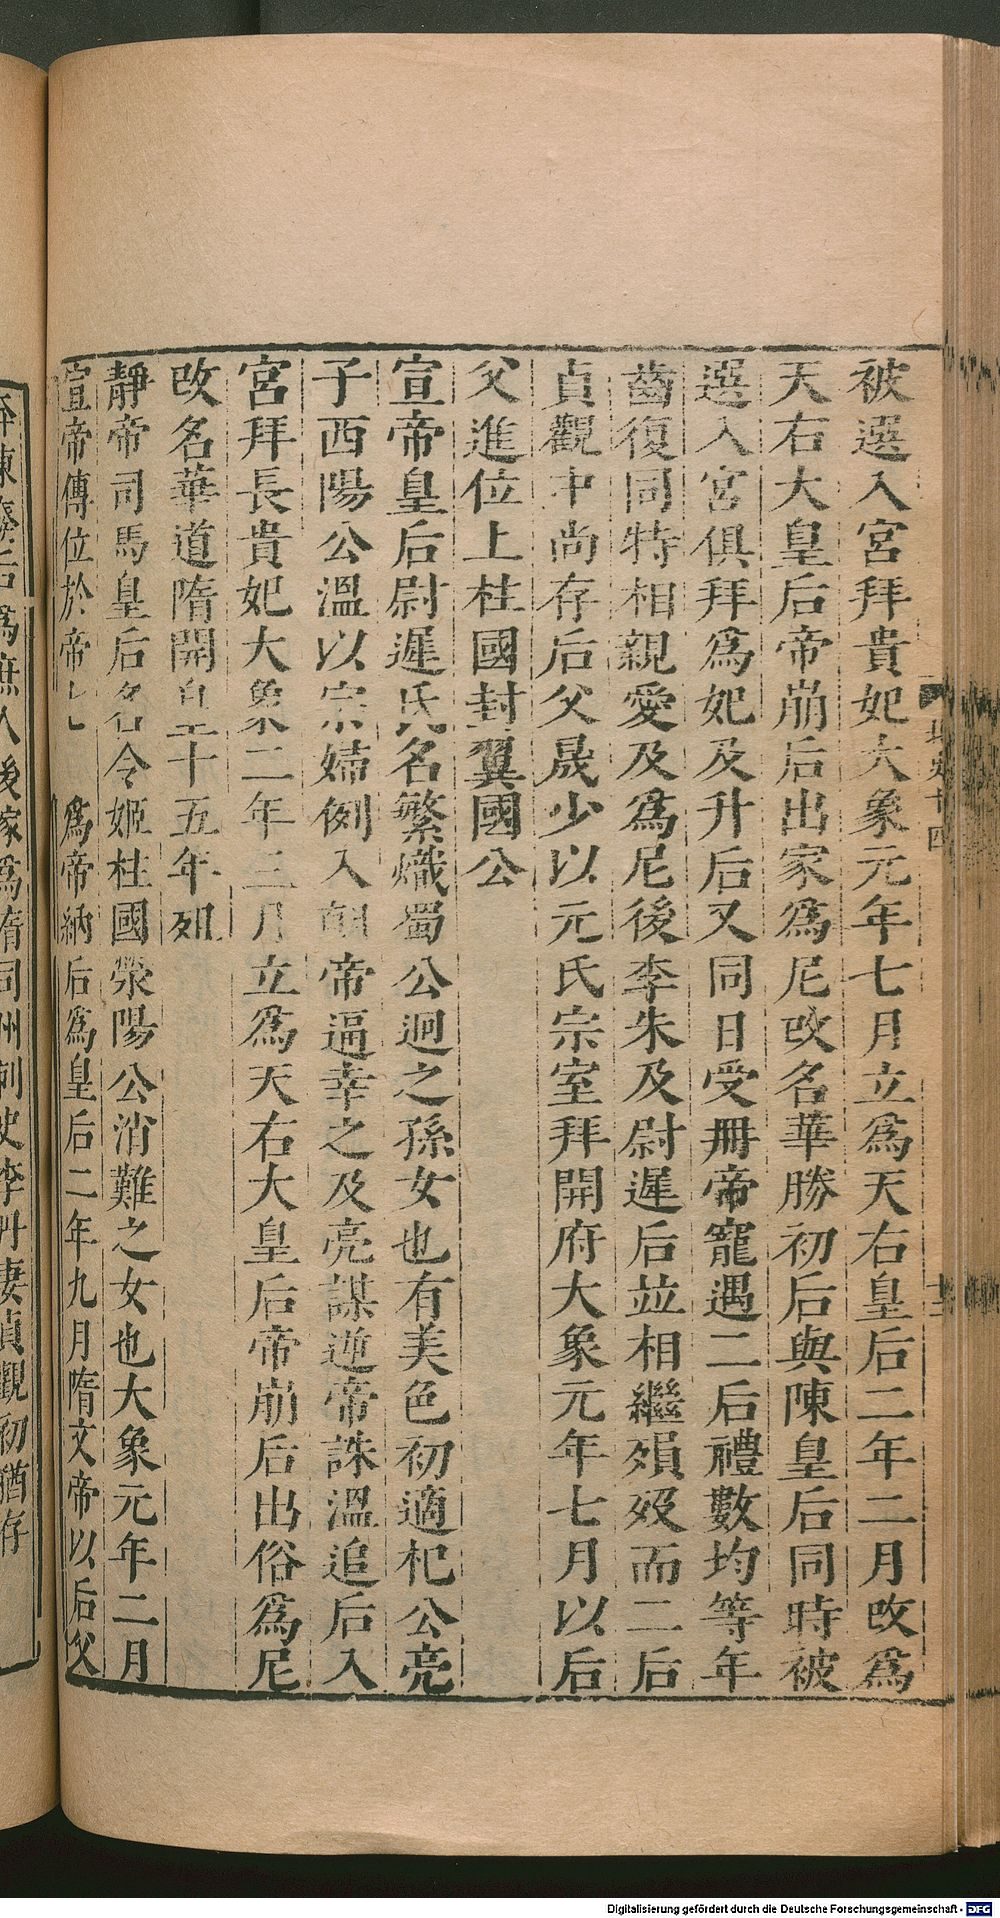 被選入宮拜貴妃大象元年七月立爲天右皇后二年二月改爲
天右大皇后帝崩后出家爲尼改名華勝初后與陳皇后同時被
選入宮俱拜爲妃及升后又同日受冊帝寵遇二后禮數均等年
齒復同特相親愛及爲尼後李朱及尉遲后並相繼殞歿而二后
貞觀中尚存后父晟少以元氏宗室拜開府大象元年七月以后
父進位上柱國封翼國公
宣帝皇后尉遲氏名繁熾蜀公迥之孫女也有美色初適杞公亮
子西陽公溫以宗婦例入朝帝逼幸之及亮謀逆帝誅溫追后入
宮拜長貴妃大象二年三月立爲天右大皇后帝崩后出俗爲尼
改名華道隋開皇十五年殂
靜帝司馬皇后名令姬柱國滎陽公消難之女也大象元年二月
宣帝傳位於帝七 爲帝納后爲皇后二年九月隋文帝以后父
奔陳廢后爲庶人後嫁爲隋司州刺史李丹妻貞觀初猶存
Digitalisierung gefördert durch die Deutsche Forschungsgemeinschaft - DFG